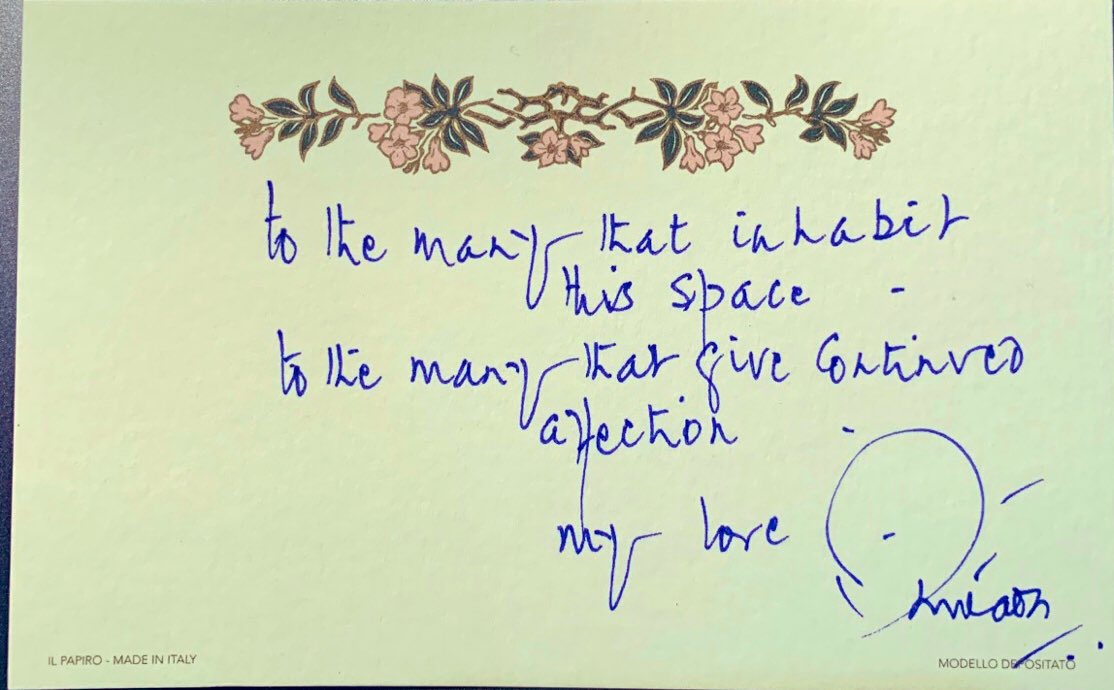 to the many that inhabit
this space -
to the many that give continued
affection
my love
IL PAPIRO - MADE IN ITALY
MODELLO DEPOSITATO